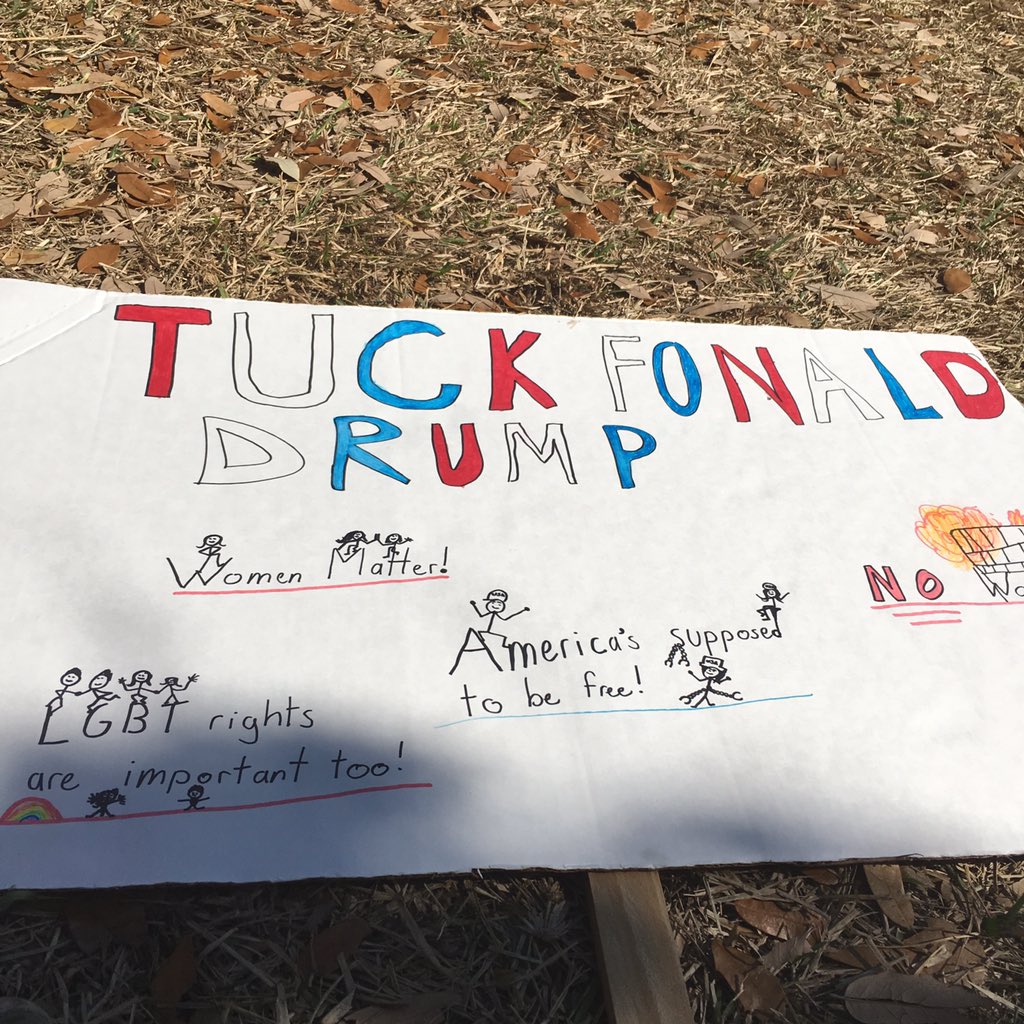 TUCK FONALD
DRUMP
Women Matter!
NO
America's supposed
to be free!
LGBT rights
are important too!